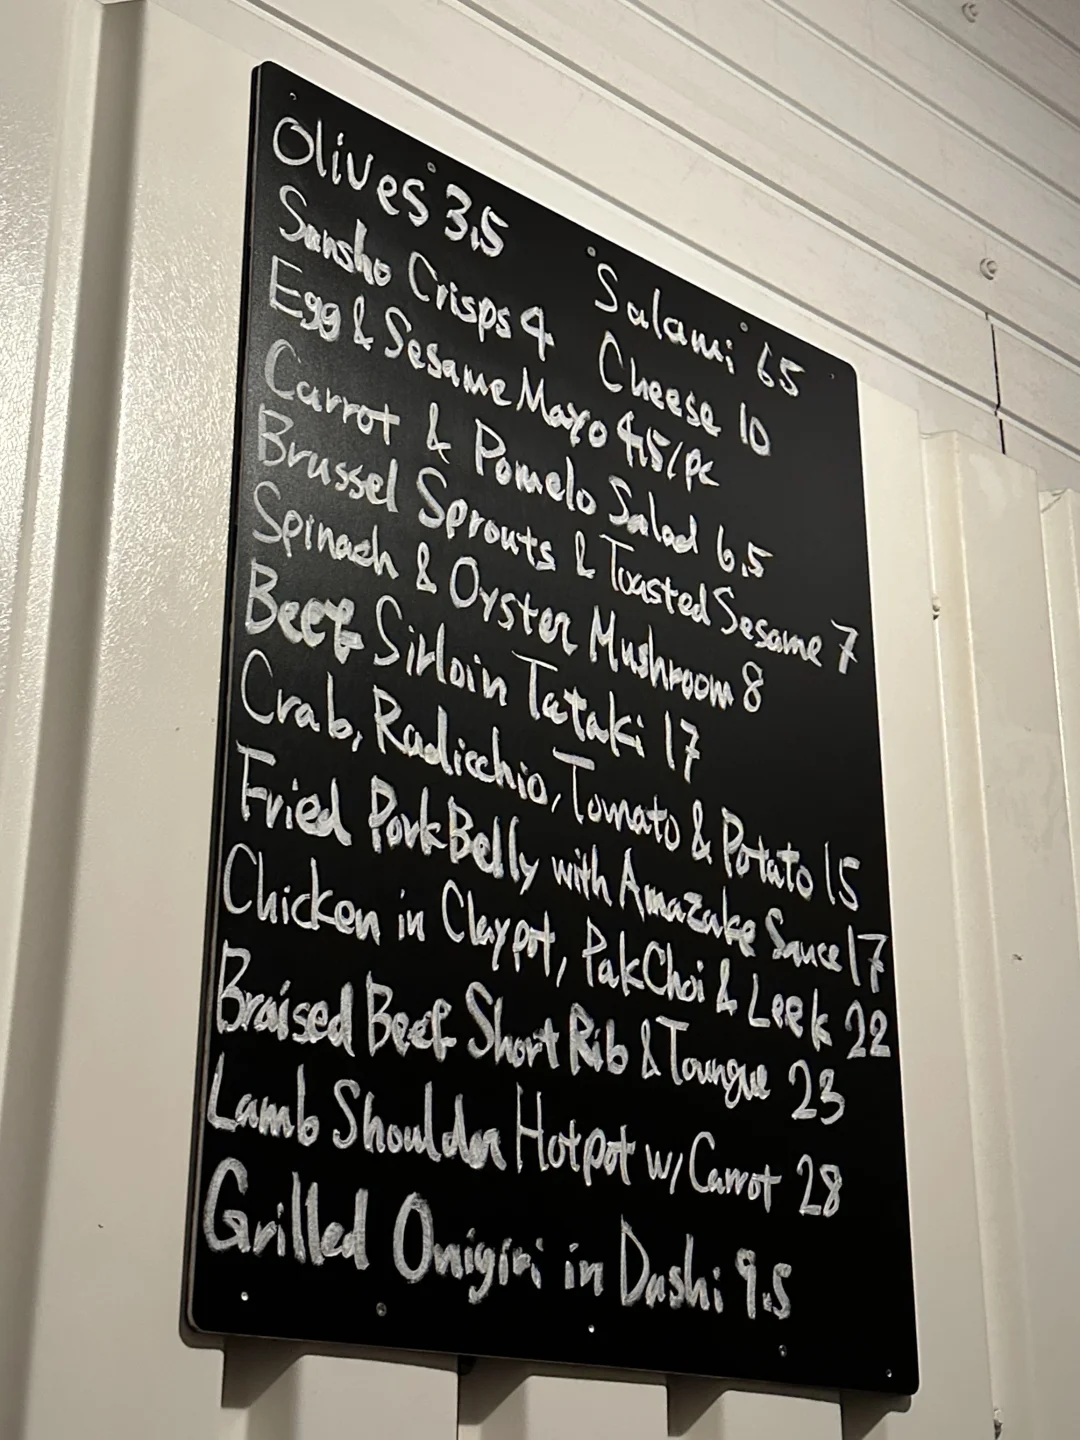 Olives 3.5
Salami 65
Sansho Crisps 4
Cheese 10
Egg & Sesame Mayo 4.5/pc
Carrot & Pomelo Salad 6.5
Brussel Sprouts & Toasted Sesame 7
Spinach & Oyster Mushroom 8
Beef Sirloin Tataki 17
Crab, Radicchio, Tomato & Potato 15
Fried Pork Belly with Amazake Sauce 17
Chicken in Claypot, Pak Choi & Leek 22
Braised Beef Short Rib & Toungue 23
Lamb Shoulder Hotpot w/ Carrot 28
Grilled Onigiri in Dashi 9.5